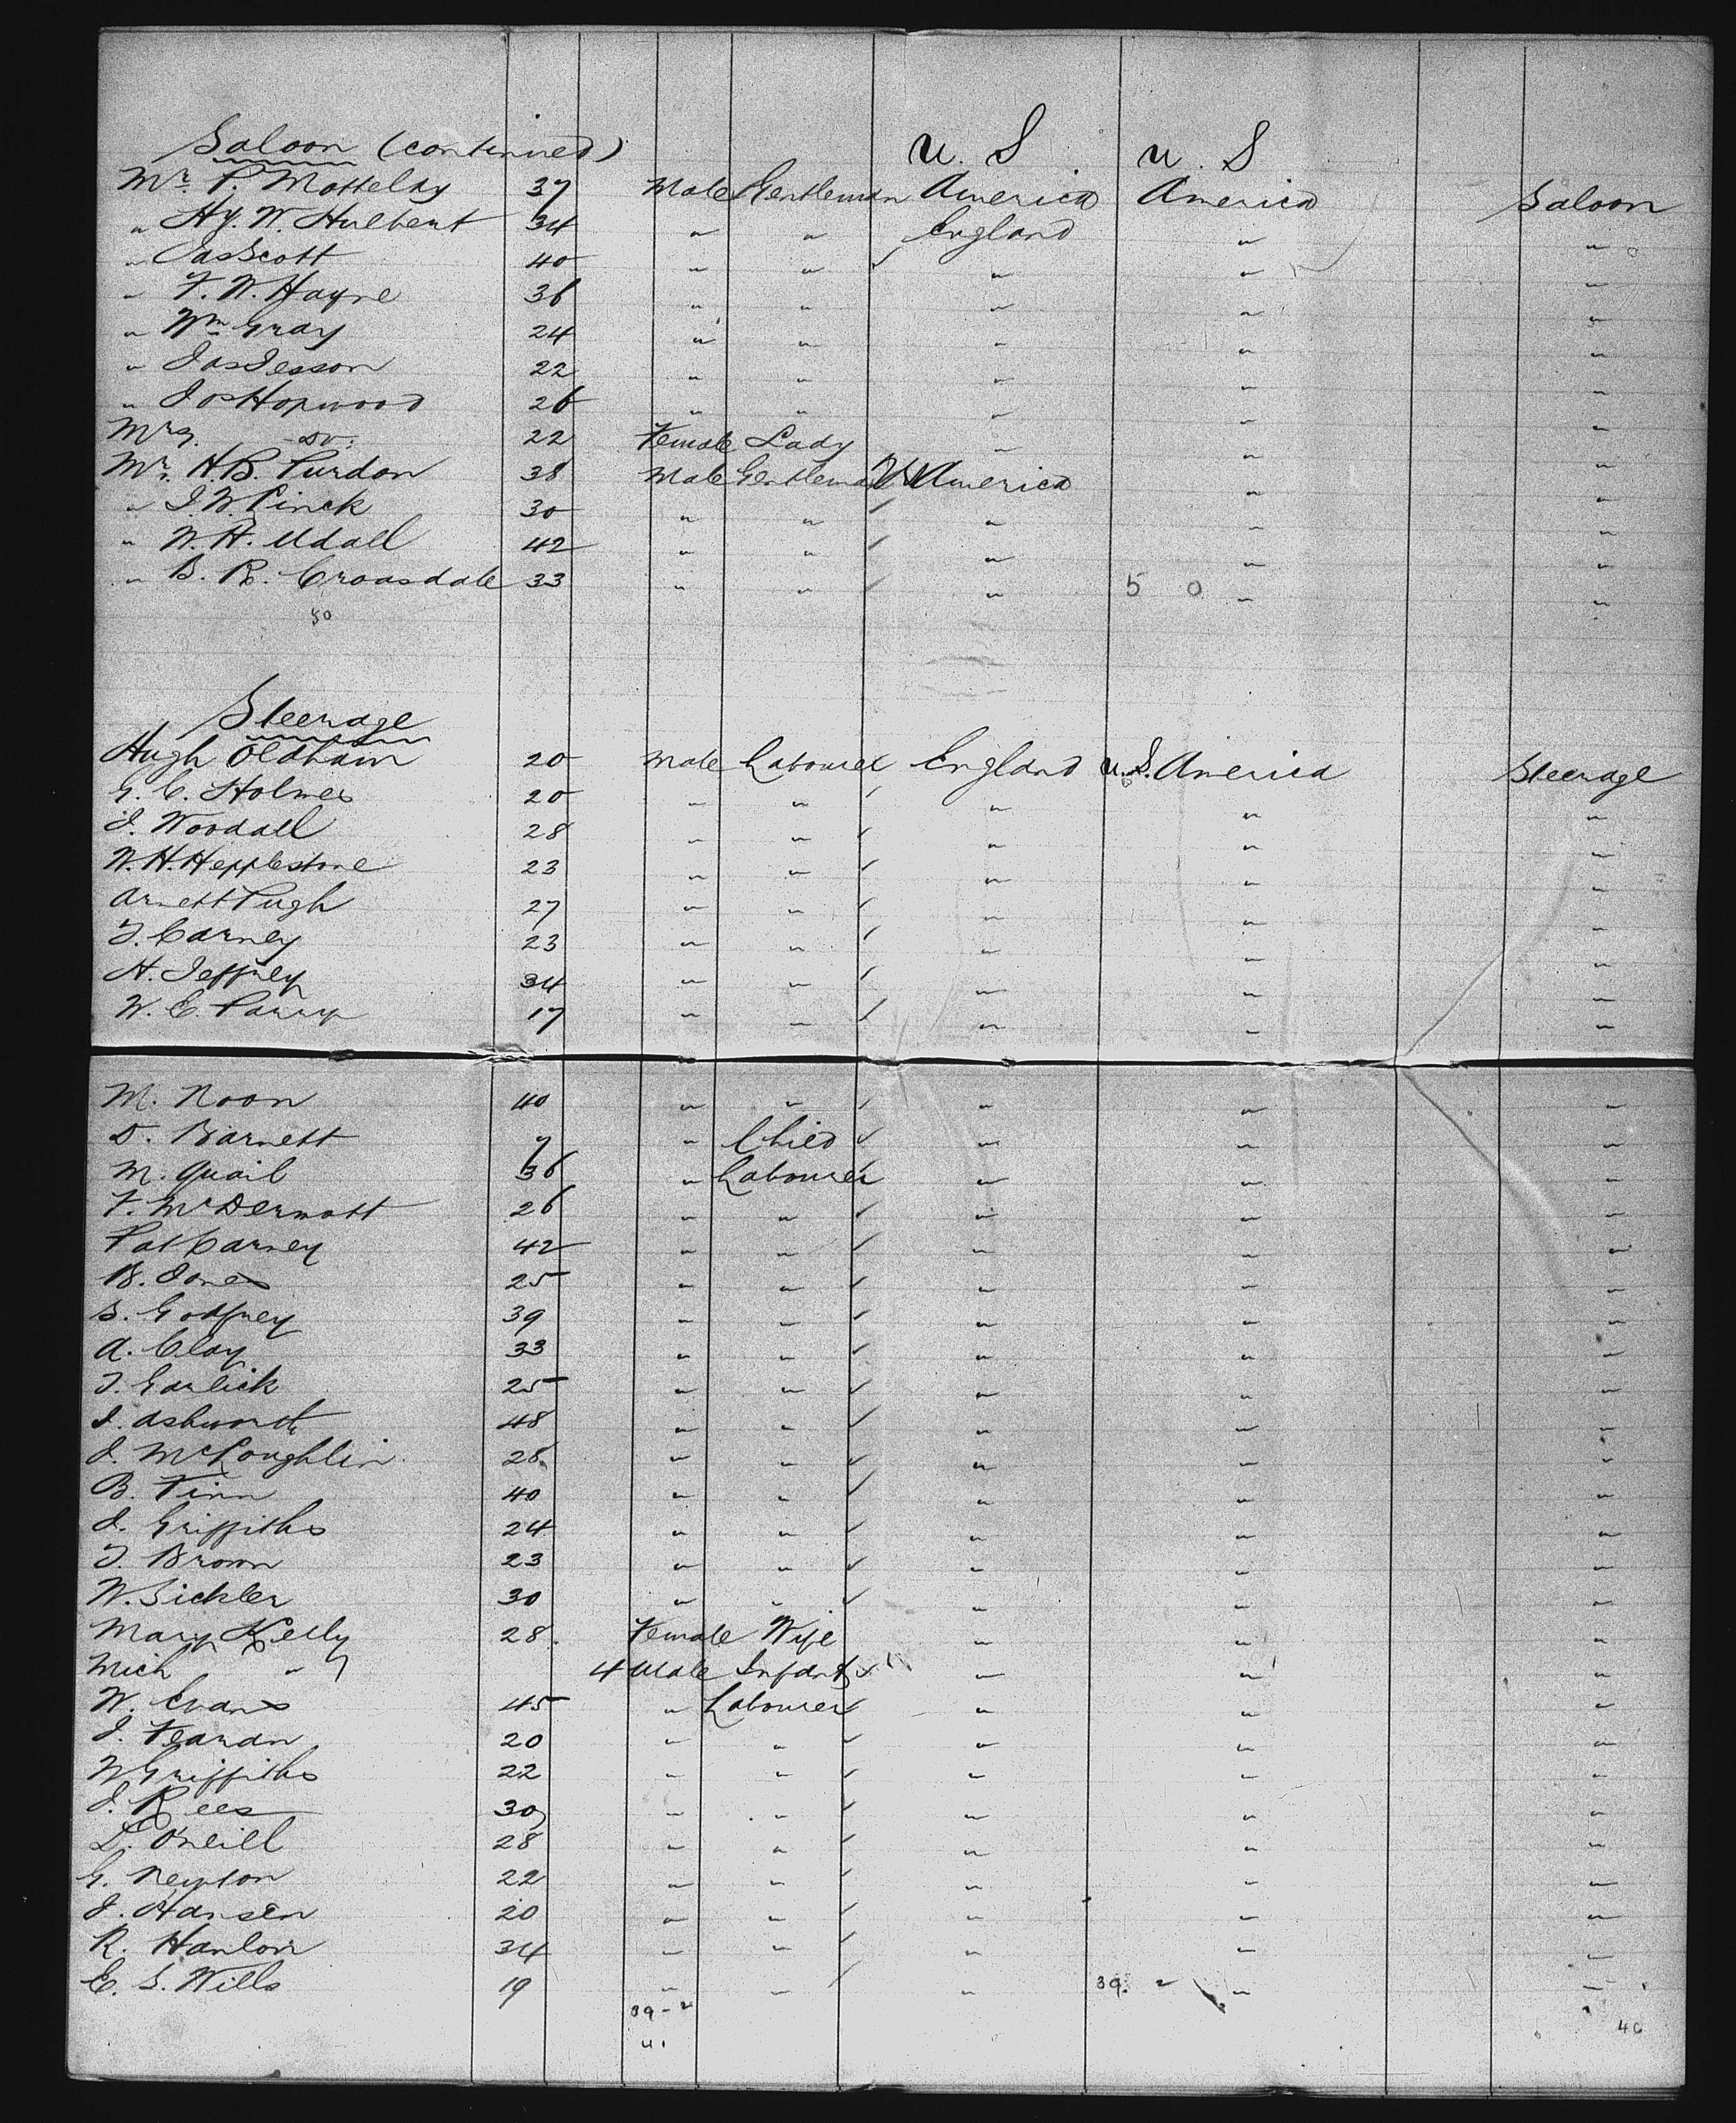 Saloon (continued) U. S U. S
Mr. P. Mottelay 37 Male Gentleman America America Saloon
" Hy. W. Hulbert 34 " " England " "
" Jas Scott 40 " " " " "
" F. W. Hayne 36 " " " " "
" Wm Gray 24 " " " " "
" Jas Jesson 22 " " " " "
" Jos Hopwood 26 " " " " "
Mrs. Do. 22 Female Lady " " "
Mr. H. B. Purdon 38 Male Gentleman US America " "
" J. W. Pinck 30 " " " " "
" W. H. Udall 42 " " " " "
" B. R. Croasdale 33 " " " 5 0 " "
50
Steerage
Hugh Oldham 20 Male Labourer England U. S. America Steerage
G. C. Holmes 20 " " " " "
J. Woodall 28 " " " " "
W. H. Hepplestone 23 " " " " "
Arnett Pugh 27 " " " " "
T. Carney 23 " " " " "
H. Jeffrey 34 " " " " "
W. E. Parry 17 " " " " "
M. Noon 40 " " " " "
D. Barnett 7 " Child " " "
M. Quail 36 " Labourer " " "
F. McDermott 26 " " " " "
Pat Carney 42 " " " " "
B. Jones 25 " " " " "
S. Godfrey 39 " " " " "
A. Clay 33 " " " " "
T. Garlick 25 " " " " "
J. Ashworth 48 " " " " "
J. McLoughlin 28 " " " " "
B. Finn 40 " " " " "
J. Griffiths 24 " " " " "
T. Brown 23 " " " " "
W. Sickler 30 " " " " "
Mary Kelly 28 Female Wife " " "
Mich " 4 Male Infant " " "
W. Evans 45 " Labourer " " "
J. Fearon 20 " " " " "
W Griffiths 22 " " " " "
J. Rees 30 " " " " "
L. O'Neill 28 " " " " "
G. Newton 22 " " " " "
J. Hansen 20 " " " " "
R. Hanlon 34 " " " " "
E. S. Wills 19 " " " 39. 2 " "
39 - 2
41 46